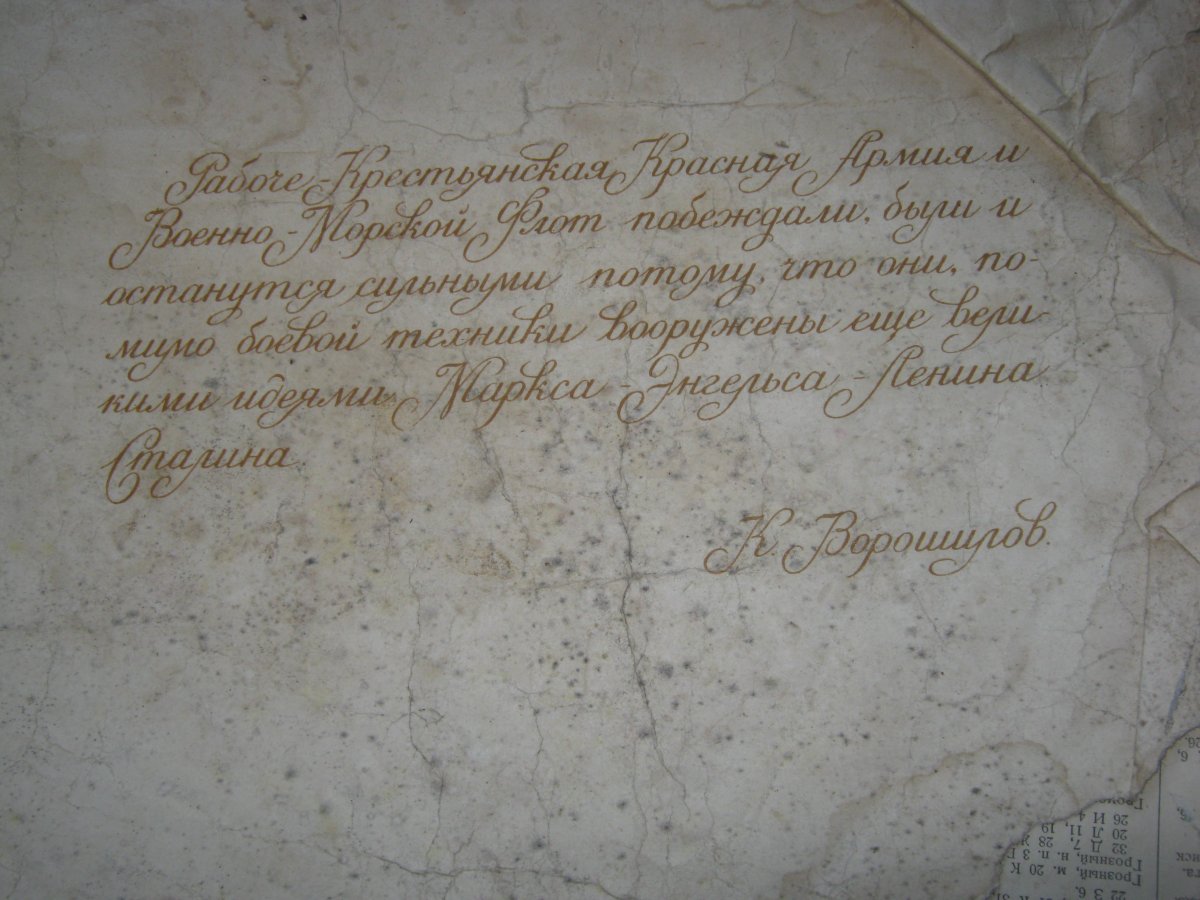 Рабоче-Крестьянская Красная Армия и
Военно-Морской Флот побеждали, были и
останутся сильными потому, что они, по-
мимо боевой техники вооружены еще вели-
кими идеями Маркса-Энгельса-Ленина
Сталина
К. Ворошилов.
22 З 6.
Грозный, м. 20 К
Грозный, н. п. 3 Г
32 Д 7, 28
20 Л 11, 19
26 И 4